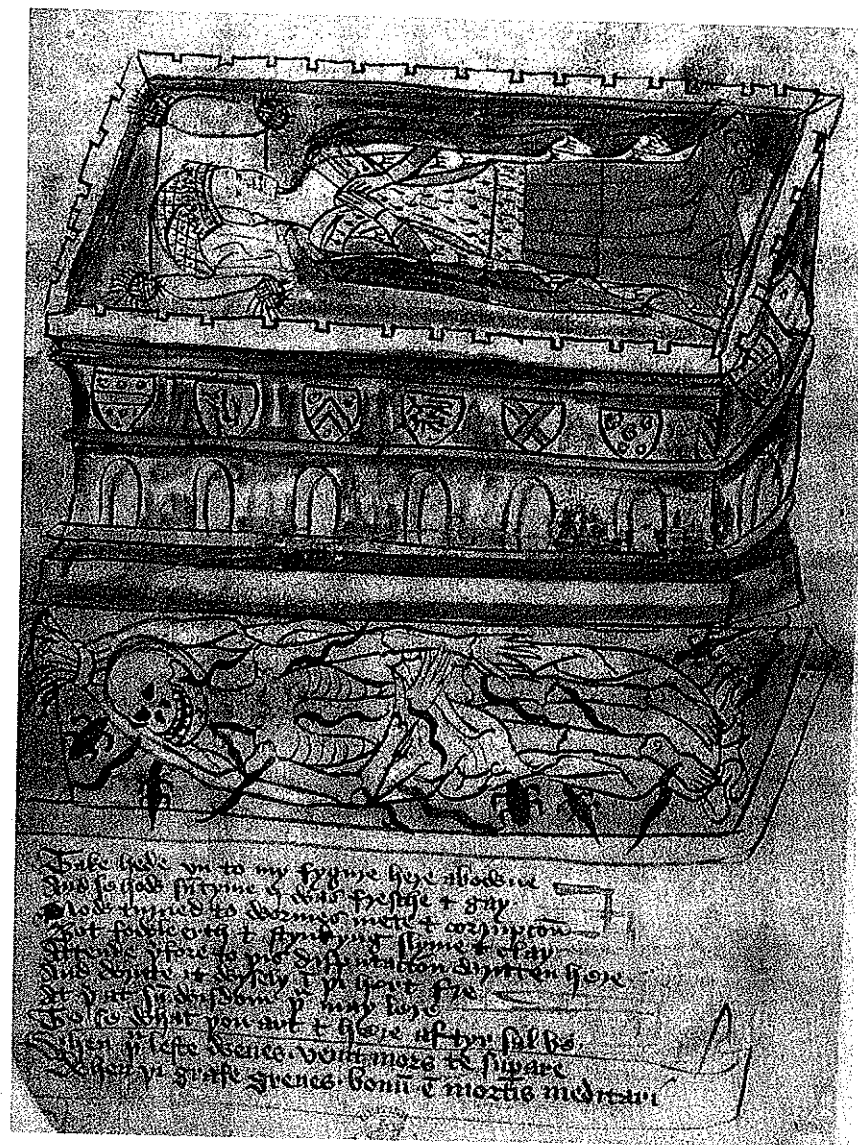 Take hede vn to my fygure here abowne
And se how sumtyme I was fresche & gay
Now turned to wormes mete & corrupcon
Bot fowle erth & stynkyng slyme & clay
Attende þfore to þis disputacion written here
And wryte it wysely ī þi hert fre
At þat sū wisdom þu may lere
To se what þou art & here aftyr sal be
When þu leste wenes. venit mors te supare
When þi grafe grenes. bonū ē mortis meditari